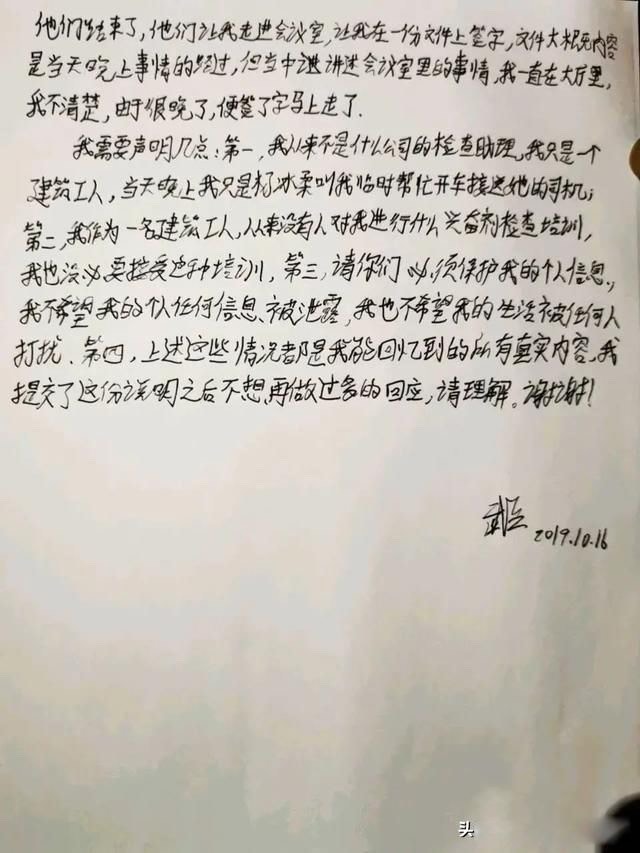 他们结束了，他们让我走进会议室，让我在一份文件上签字，文件大概内容
是当天晚上事情的经过，但当中进讲述会议室里的事情，我一直在大厅里，
我不清楚，由于很晚了，便签了字马上走了.
我需要声明几点：第一，我从来不是什么公司的检查助理，我只是一个
建筑工人，当天晚上我只是杨冰柔叫我临时帮忙开车接送她的司机；
第二，我作为一名建筑工人，从来没有人对我进行什么兴奋剂检查培训，
我也没必要接受这种培训，第三，请你们必须保护我的个人信息，
我不希望我的个人任何信息被泄露，我也不希望我的生活被任何人
打扰、第四，上述这些情况都是我能回忆到的所有真实内容，我
提交了这份说明之后不想再做过多的回应，请理解。谢谢！
2019.10.16
头